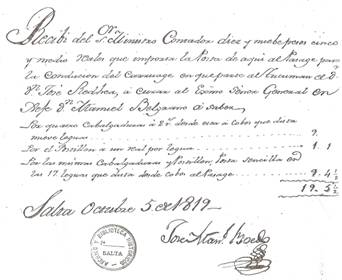 Recibi del Sr. Ministro Contador diez y nuebe pesos cinco
y medio reales que importa la Posta de aqui al Pasage para
la Conducion del Carruage en que parte al Tucuman el D.r
Dn. José Redhea, à curar al Exmo Señor General en
Xefe Dn. Manuel Belgrano à saber
Por quatro Cabalgaduras à 2 rs. donde esta a Cobos que dista
nueve leguas 9.
Por el Postillon à un real por legua 1. 1
Por las mismas Cabalgaduras y Postillon, Posta sencilla en
las 17. leguas que dista desde Cobos al Pasage 9. 4½
19. 5½
Salta Octubre 5. de 1819
José
ARCHIVO Y BIBLIOTECA HISTORICOS
SALTA